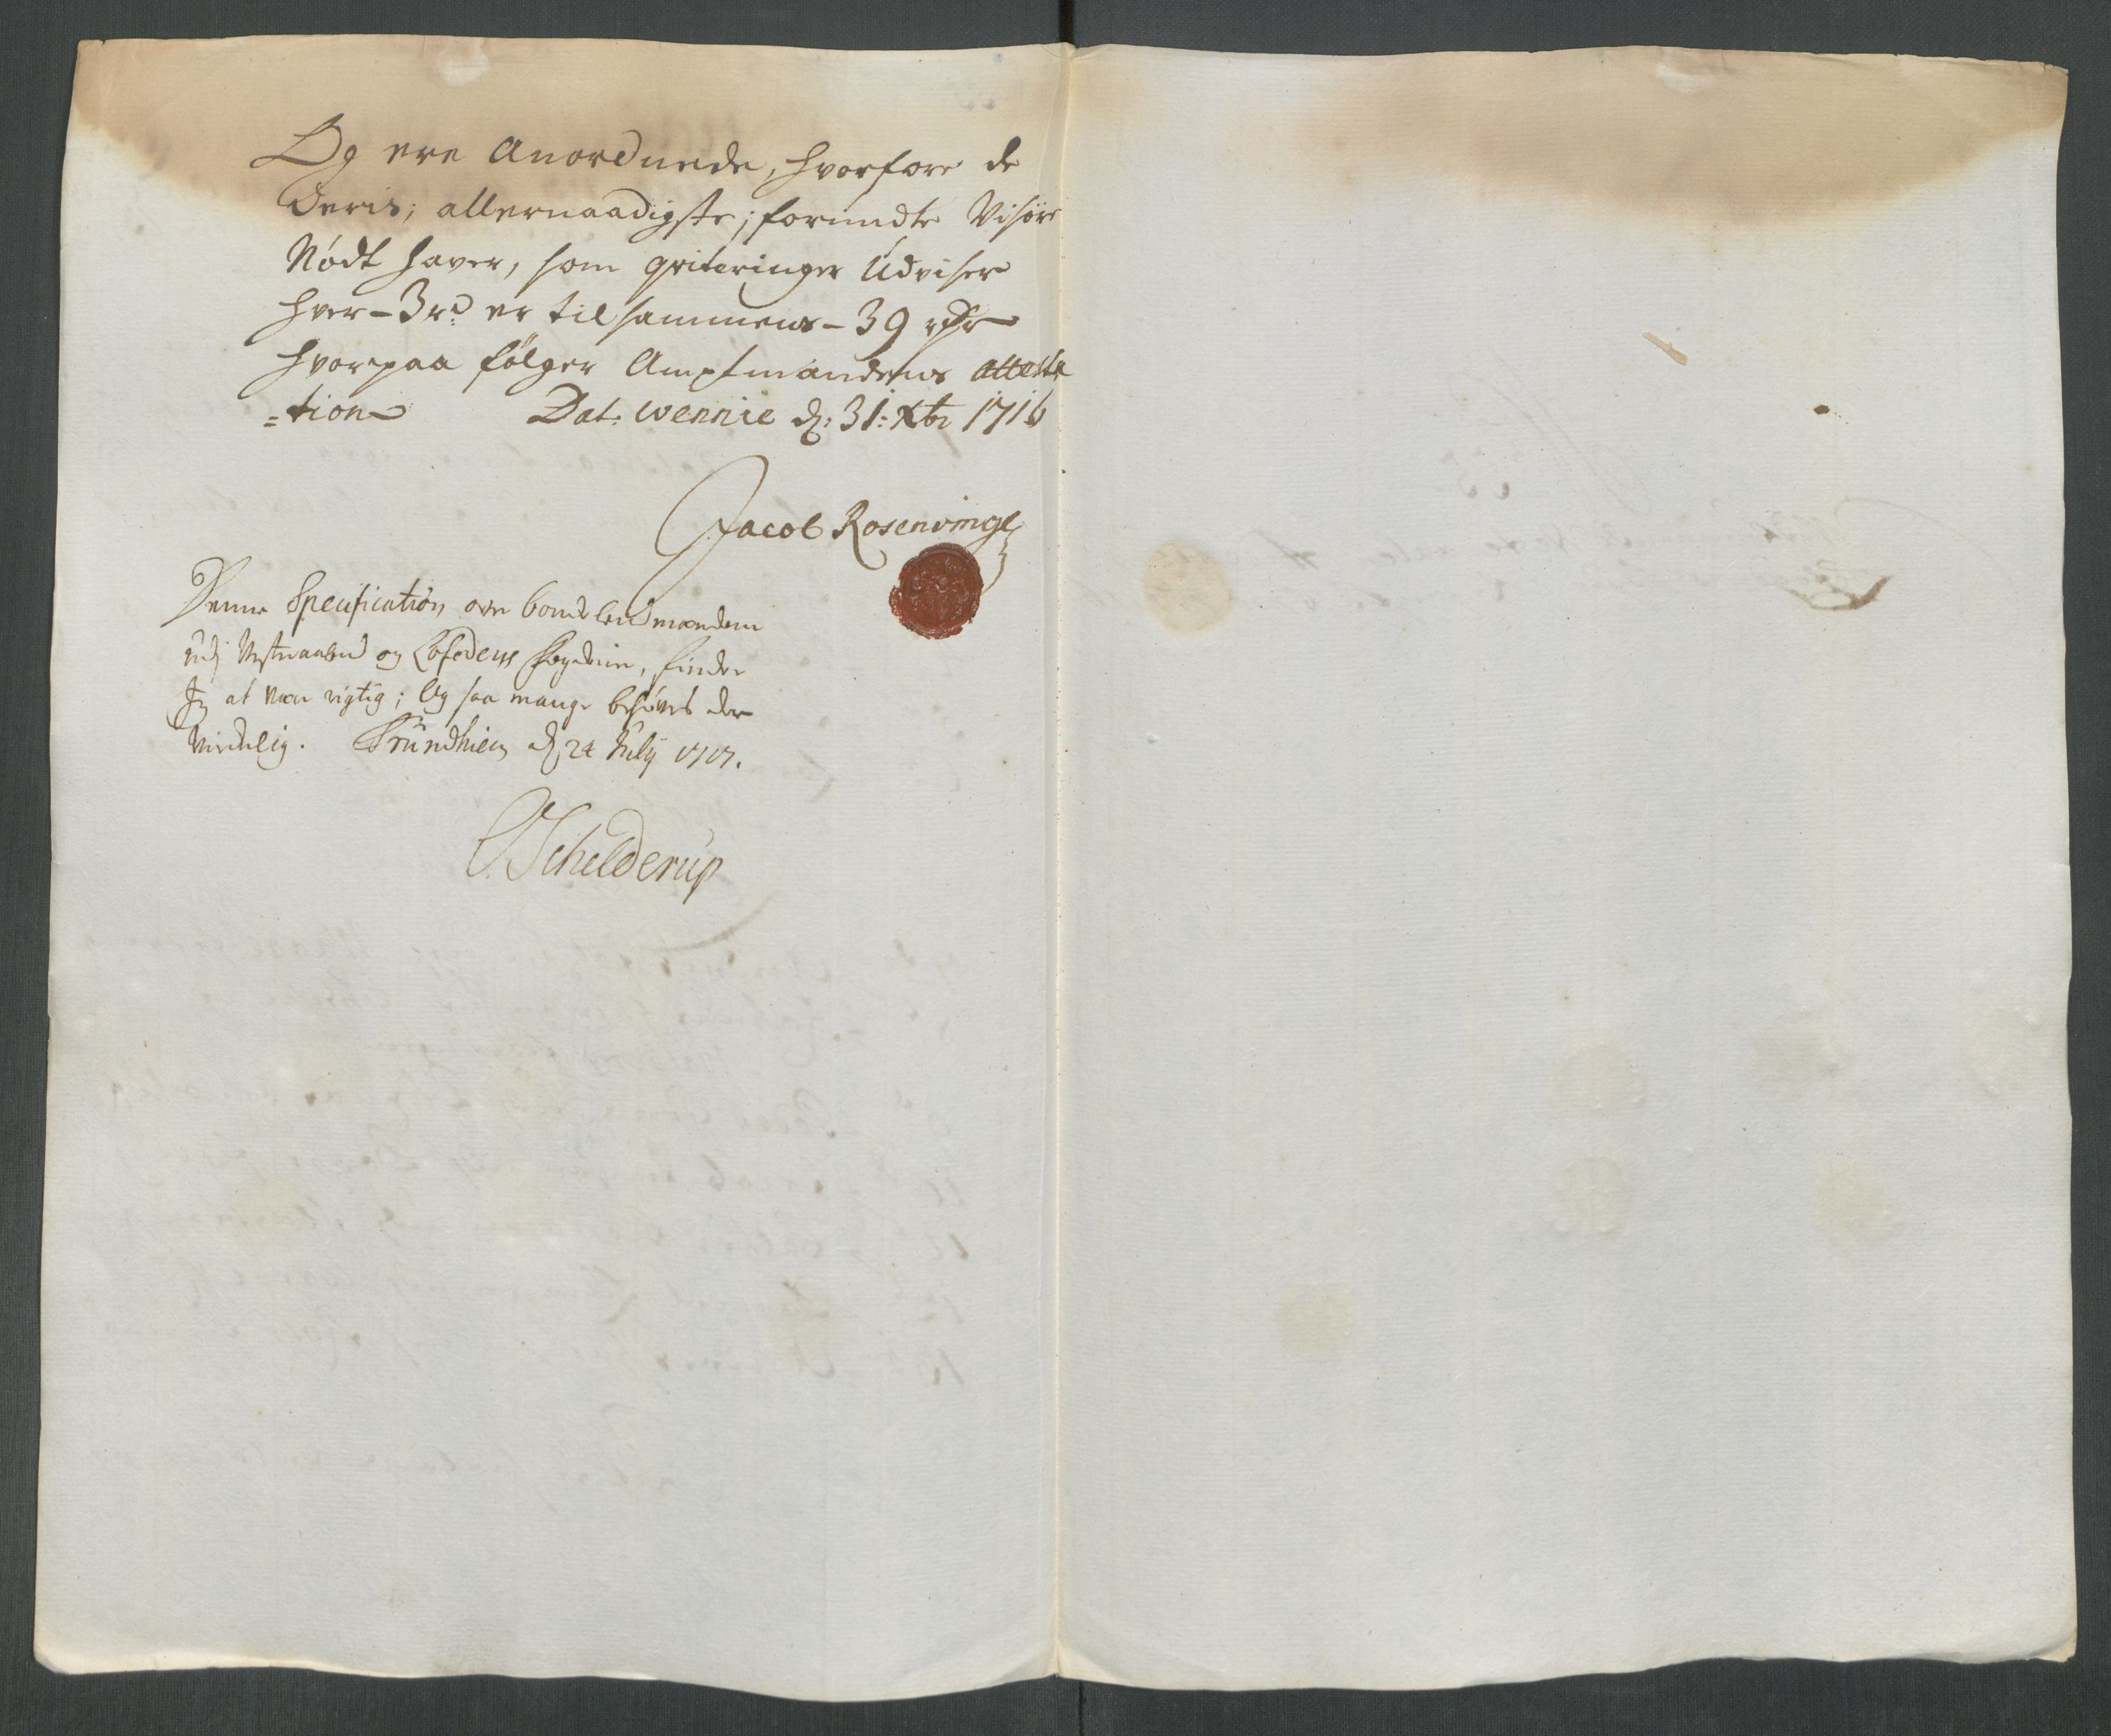 Og ere Anordnede, hvorfore de
Deris; allernaadigste; forundte Visöre
Nødt haver, som qviteringer Udviser
hver - 3 rd er tilsammens - 39 rdr
hvorpaa følger Amptmandens attesta
=tion Dat. wennie d: 31: Xbr 1716
Jacob Rosenvinge
Denne Specification over bondelendsmændene
udj Vestraalen og Lofodens fogderie, finder
Jeg at være rigtig; Og saa mange behøves der
Virkelig. Trundhiem d 24 July 1717.
Schelderup